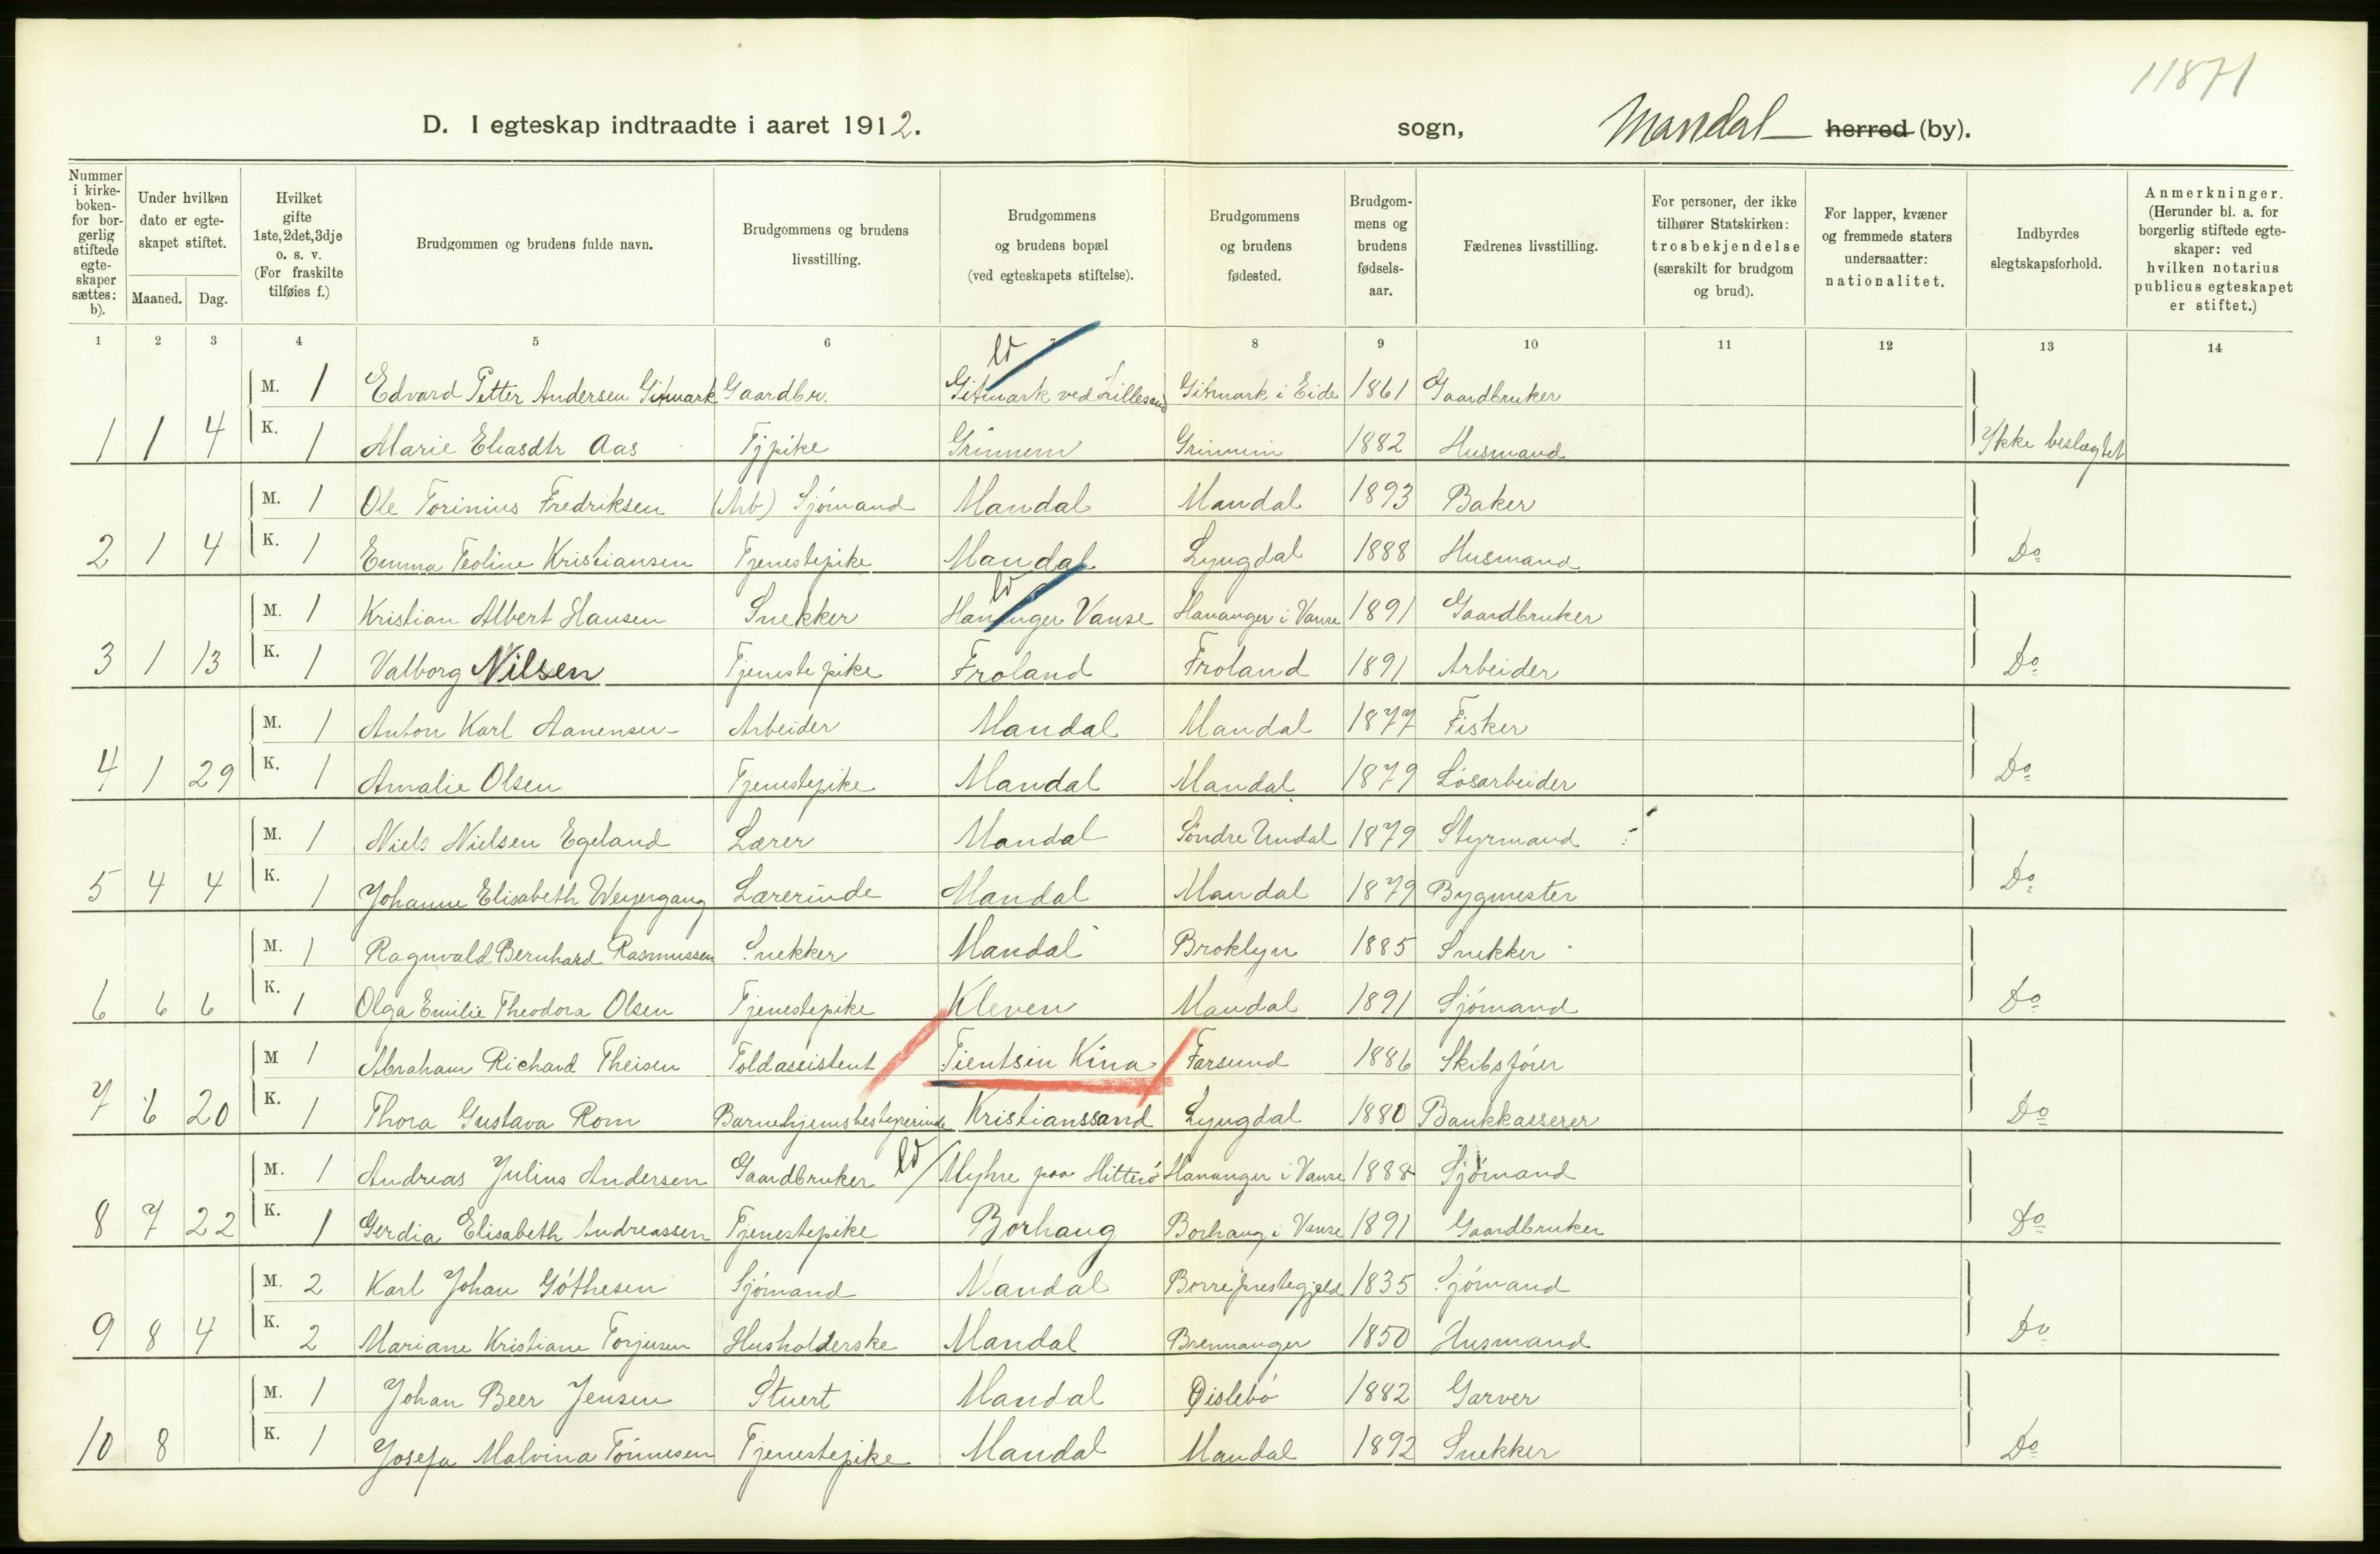 11871
D. I egteskap indtraadte i aaret 1912. sogn, Mandal herred (by).
Nummer i kirkeboken- for borgerlig stiftede egteskaper sættes: b).
Under hvilken dato er egteskapet stiftet.
Maaned. Dag.
Hvilket gifte 1ste, 2det, 3dje o. s. v. (For fraskilte tilføies f.)
Brudgommen og brudens fulde navn.
Brudgommens og brudens livsstilling.
Brudgommens og brudens bopæl (ved egteskapets stiftelse).
Brudgommens og brudens fødested.
Brudgommens og brudens fødselsaar.
Fædrenes livsstilling.
For personer, der ikke tilhører Statskirken: trosbekjendelse (særskilt for brudgom og brud).
For lapper, kvæner og fremmede staters undersaatter: nationalitet.
Indbyrdes slegtskapsforhold.
Anmerkninger. (Herunder bl. a. for borgerlig stiftede egteskaper: ved hvilken notarius publicus egteskapet er stiftet.)
1 2 3 4 5 6 7 8 9 10 11 12 13 14
M. 1 Edvard Petter Andersen Gitmark Gaardbr. Gitmark ved Lillesand Gitmark i Eide 1861 Gaardbruker
1 1 4 K. 1 Marie Eliasdtr Aas Tjpike Grimnem Grimnem 1882 Husmand Ikke beslægtet
M. 1 Ole Torinius Fredriksen (Arb) Sjómand Mandal Mandal 1893 Baker
2 1 4 K. 1 Emma Teoline Kristiansen Tjenestepike Mandal Lyngdal 1888 Husmand Do
M. 1 Kristian Albert Hansen Snekker Hananger Vanse Hananger i Vanse 1891 Gaardbruker
3 1 13 K. 1 Valborg Nilsen Tjenestepike Froland Froland 1891 Arbeider Do
M. 1 Anton Karl Aanensen Arbeider Mandal Mandal 1877 Fisker
4 1 29 K. 1 Amalie Olsen Tjenestepike Mandal Mandal 1879 Lósarbeider Do
M. 1 Niels Nielsen Egeland Lærer Mandal Sóndre Undal 1879 Styrmand
5 4 4 K. 1 Johanne Elisabeth Weyergang Lærerinde Mandal Mandal 1879 Bygmester Do
M. 1 Ragnvald Bernhard Rasmussen Snekker Mandal Broklyn 1885 Snekker
6 6 6 K. 1 Olga Emilie Theodora Olsen Tjenestepike Kleven Mandal 1891 Sjómand Do
M 1 Abraham Richard Theisen Toldassistent Tientsin Kina Farsund 1886 Skibsfórer
7 6 20 K. 1 Thora Gustava Rom Barnehjemsbestyrerinde Kristianssand Lyngdal 1880 Bankkasserer Do
M. 1 Andreas Julius Andersen Gaardbruker Myhre paa Hitteró Hananger i Vanse 1888 Sjómand
8 7 22 K. 1 Gerdia Elisabeth Andreassen Tjenestepike Borhaug Borhaug i Vanse 1891 Gaardbruker Do
M. 2 Karl Johan Góthesen Sjómand Mandal Borre prestegjeld 1835 Sjómand
9 8 4 K. 2 Mariane Kristiane Torjusen Husholderske Mandal Brennanger 1850 Husmand Do
M. 1 Johan Beer Jensen Stuert Mandal Øislebó 1882 Garver
10 8 K. 1 Josefa Malvina Tónnesen Tjenestepike Mandal Mandal 1892 Snekker Do